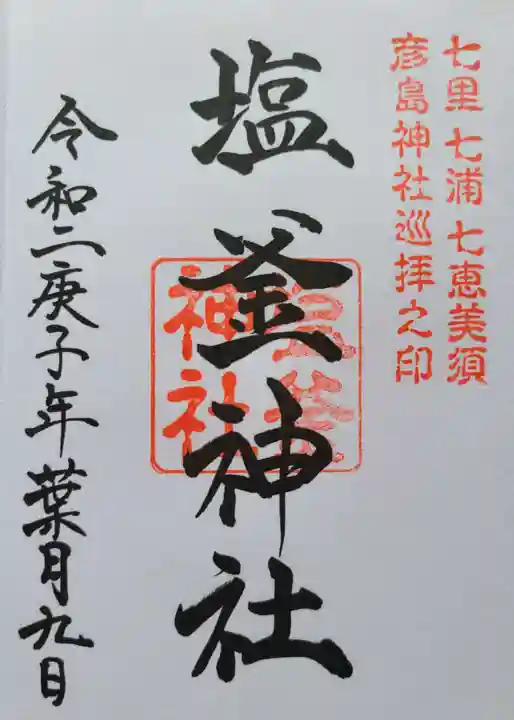 七里 七浦 七恵美須
彦島神社巡拝之印
塩釜神社
塩釜
神社
令和二庚子年葉月九日